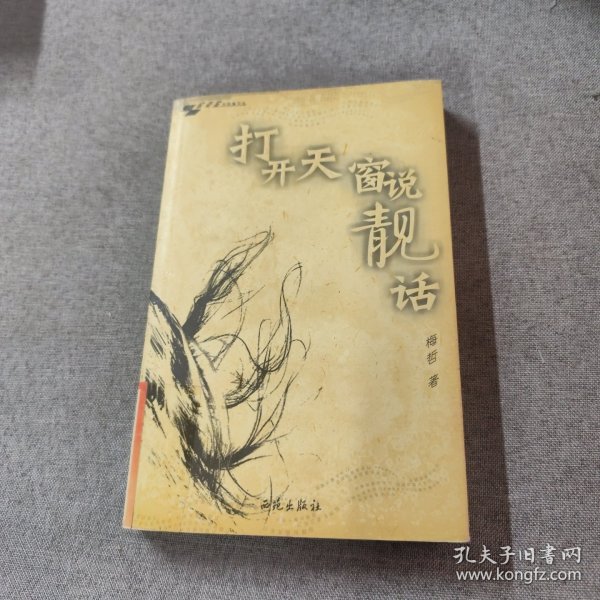 打开天窗说靓话
梅哲 著
西苑出版社
孔夫子旧书网
www.kongfz.com